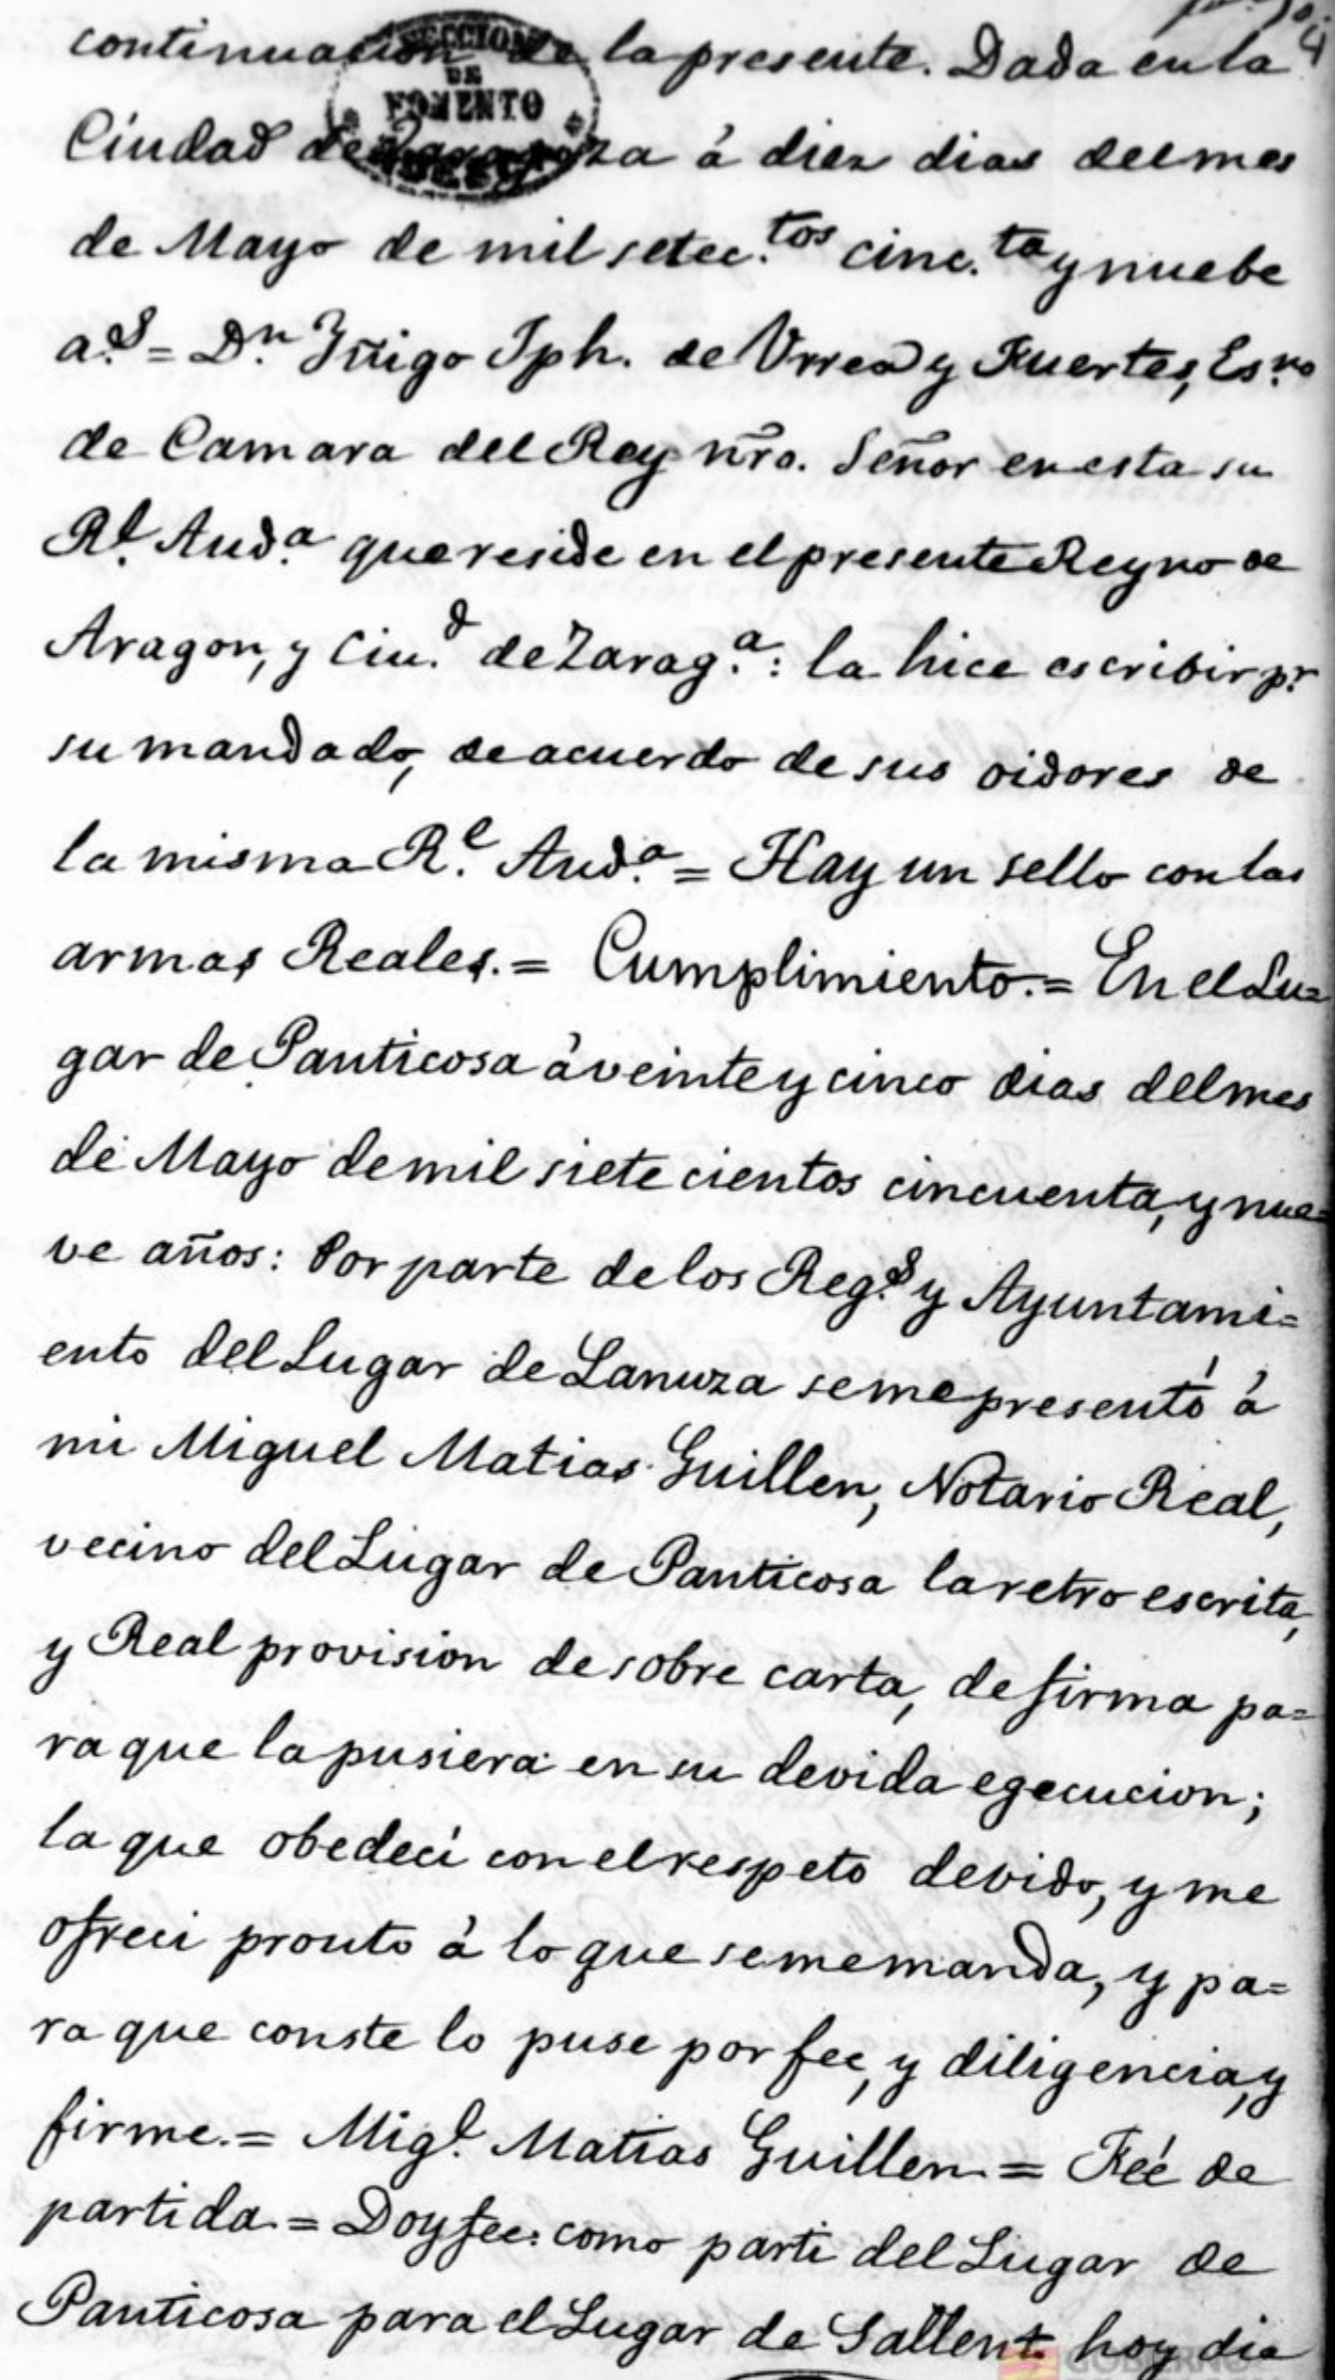 continuacion de la presente. Dada en la
SECCION DE FOMENTO
Ciudad de Zaragoza á diez dias del mes
de Mayo de mil setec.tos cinc.ta y nuebe
a.s = D.n Yñigo Jph. de Urrea y Fuertes, Es.no
de Camara del Rey nr̃o. Señor en esta su
R.l Aud.a que reside en el presente Reyno de
Aragon, y Ciu.d de Zarag.a: la hice escribir p.r
su mandado, de acuerdo de sus oidores de
la misma R.l Aud.a = Hay un sello con las
armas Reales. = Cumplimiento. = En el Lu=
gar de Panticosa á veinte y cinco dias del mes
de Mayo de mil siete cientos cincuenta, y nue=
ve años: Por parte de los Reg.s y Ayuntami=
ento del Lugar de Lanuza se me presentó á
mi Miguel Matias Guillen, Notario Real,
vecino del Lugar de Panticosa la retro escrita,
y Real provision de sobre carta, de firma pa=
ra que la pusiera en su devida egecucion;
la que obedecí con el respeto debido, y me
ofreci pronto á lo que se me manda, y pa=
ra que conste lo puse por fee, y diligencia, y
firme. = Mig.l Matias Guillen = Feé de
partida. = Doy fee: como parti del Lugar de
Panticosa para el Lugar de Sallent hoy dia